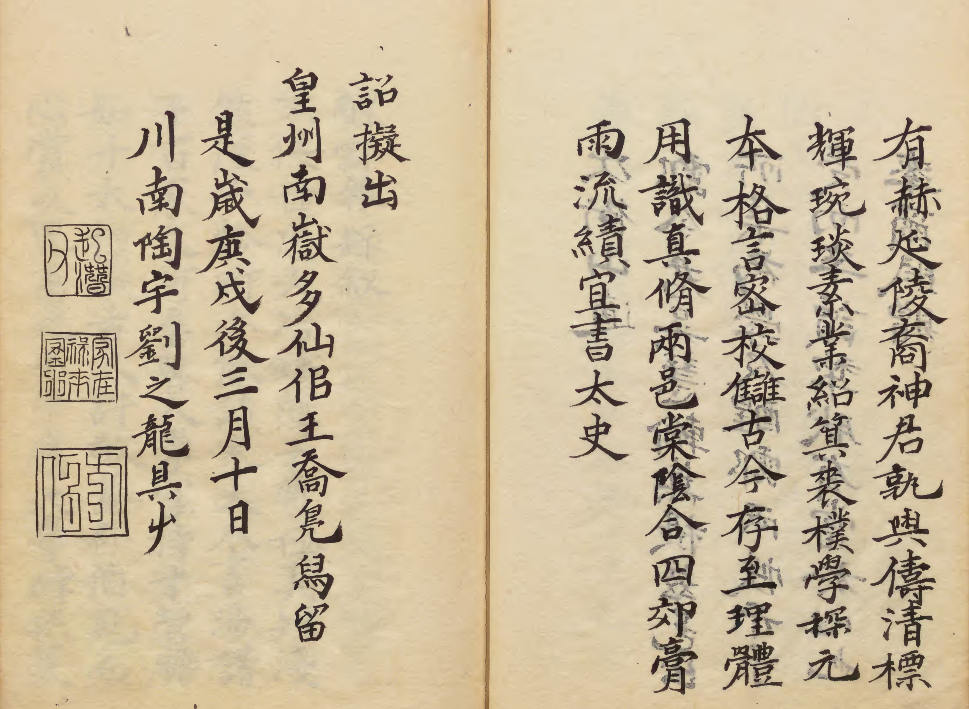 有赫延陵裔神君孰與儔清標
輝琬琰素業紹箕裘樸學探元
本格言密校讎古今存至理體
用識真脩兩邑棠陰合四郊膏
雨流績宜書太史
詔擬出
皇州南嶽多仙侶王喬鳧舄留
是歲庚戌後三月十日
川南陶宇劉之龍具艸